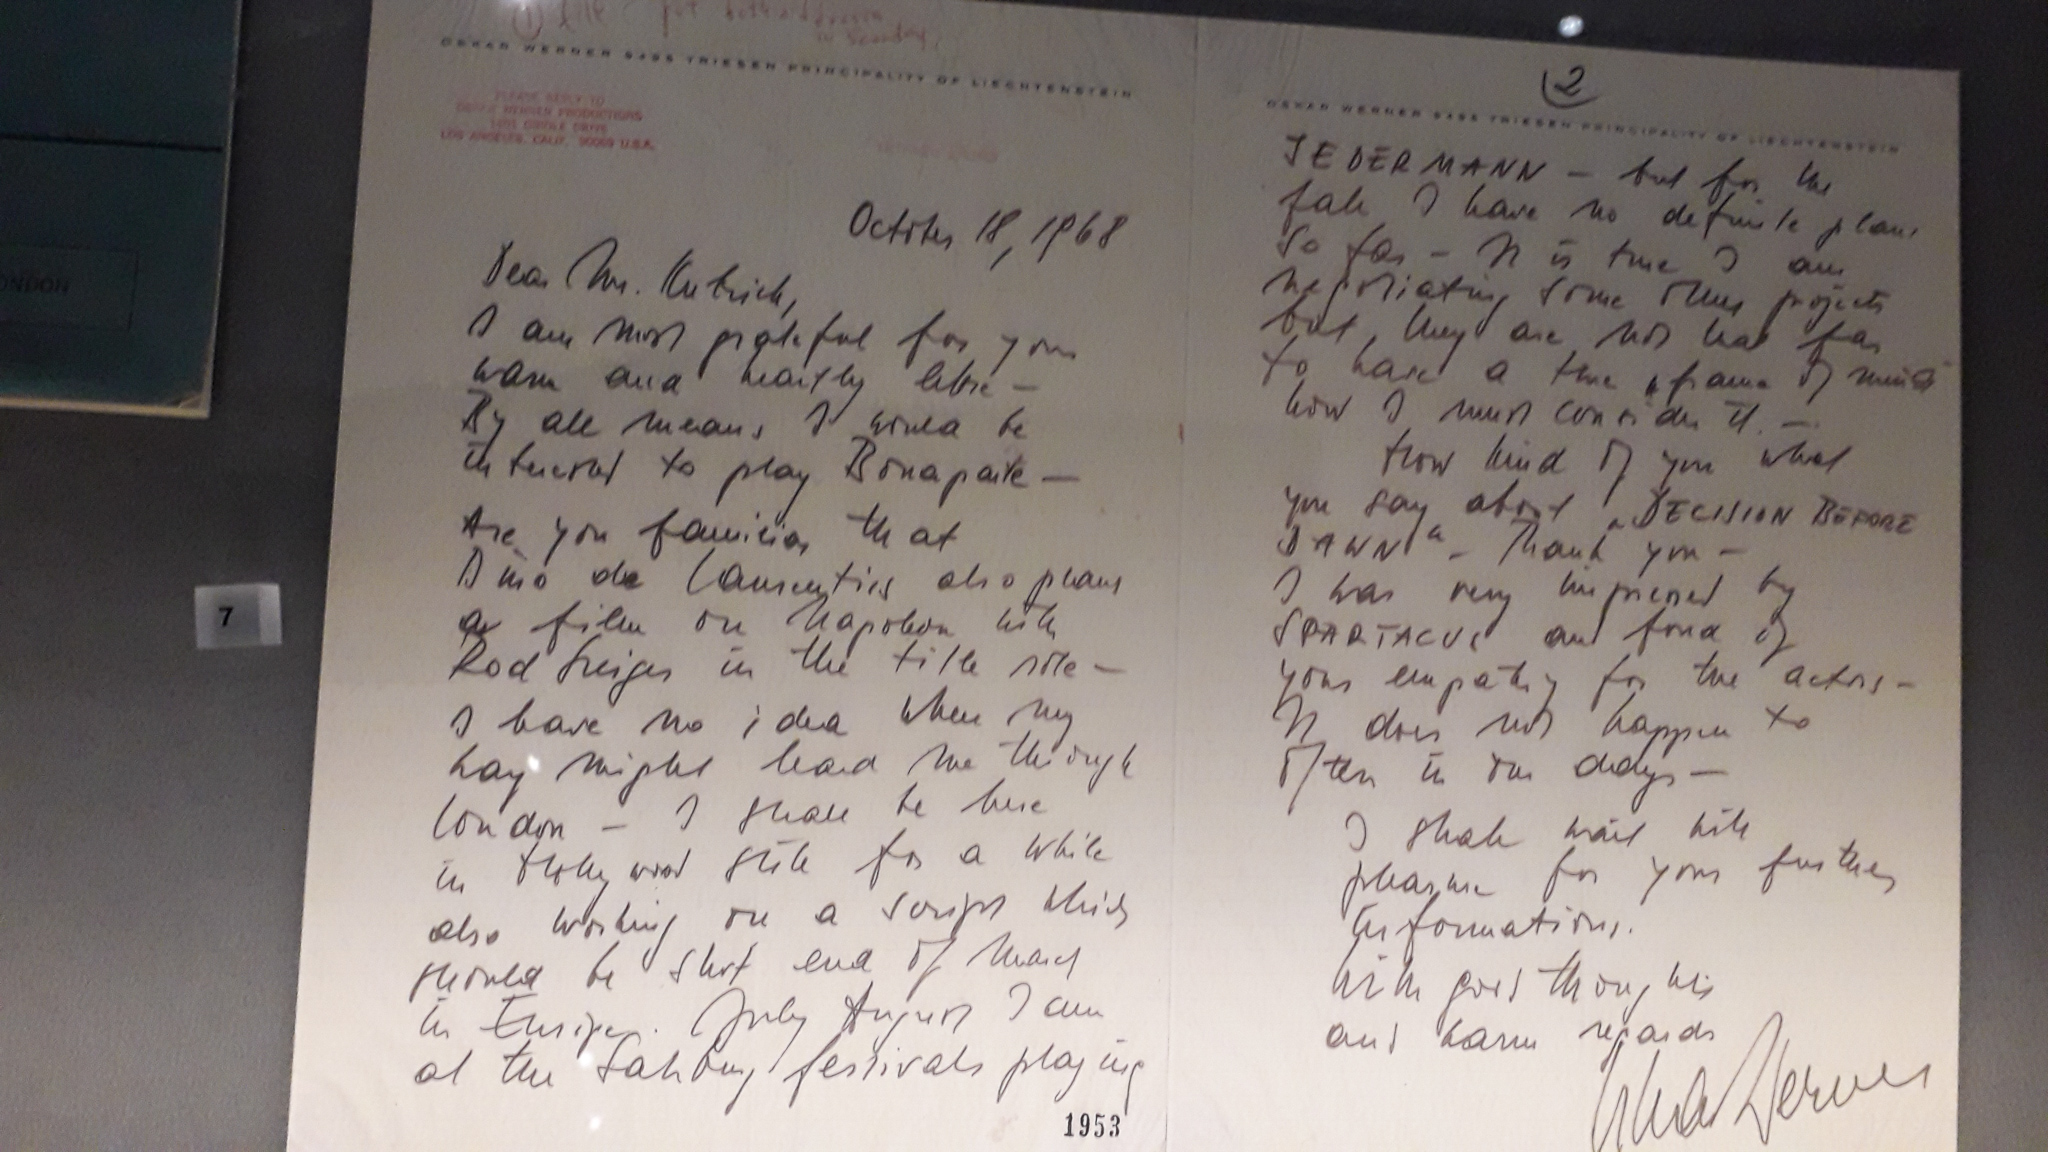 OSKAR WERNER 9495 TRIESEN PRINCIPALITY OF LIECHTENSTEIN
PLEASE REPLY TO
OSKAR WERNER PRODUCTIONS
DRIVE
LOS ANGELES, CALIF. 90069 U.S.A.
October 18, 1968
Dear Mr. Kubrick,
I am most grateful for your
warm and heartly letter –
By all means I would be
interested to play Bonaparte –
Are you familiar that
Dino de Laurentiis also plans
a film on Napoleon with
Rod Steiger in the title role –
I have no idea when my
way might lead me through
London – I shall be here
in Hollywood still for a while
also working on a script which
should be shot end of March
in Europe. July August I am
at the Salzburg festivals playing
1953
2
OSKAR WERNER 9495 TRIESEN PRINCIPALITY OF LIECHTENSTEIN
JEDERMANN – but for the
fall I have no definite plans
so far – It is true I am
negotiating some other projects
but, they are not that far
to have a time "frame of mind"
how I must consider it. –
How kind of you what
you say about "DECISION BEFORE
DAWN" – Thank you –
I was very impressed by
SPARTACUS and fond of
your empathy for the actors –
It does not happen to
often in our days –
I shall wait with
pleasure for your further
informations.
With good thoughts
and warm regards
Oskar Werner
7
LONDON